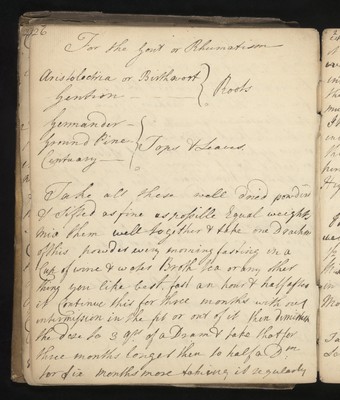 26
For the Gout or Rheumatism
Aristolochia or Birthwort
Gentian
Roots
Germander
Ground Pine
Centuary
Tops & Leaves
Take all these well dried powder'd
& sifted as fine as possible Equal weight
mix them well together & take one Drachm
of this powder every morning fasting in a
Cup of wine & water Broth tea or any other
thing you like best, fast an hour & half after
it Continue this for three months with out
intermission in the fit or out of it then diminish
the dose to 3 qrs of a Dram & take that for
three months longer then to half a Dm
for six months more taking it regularly